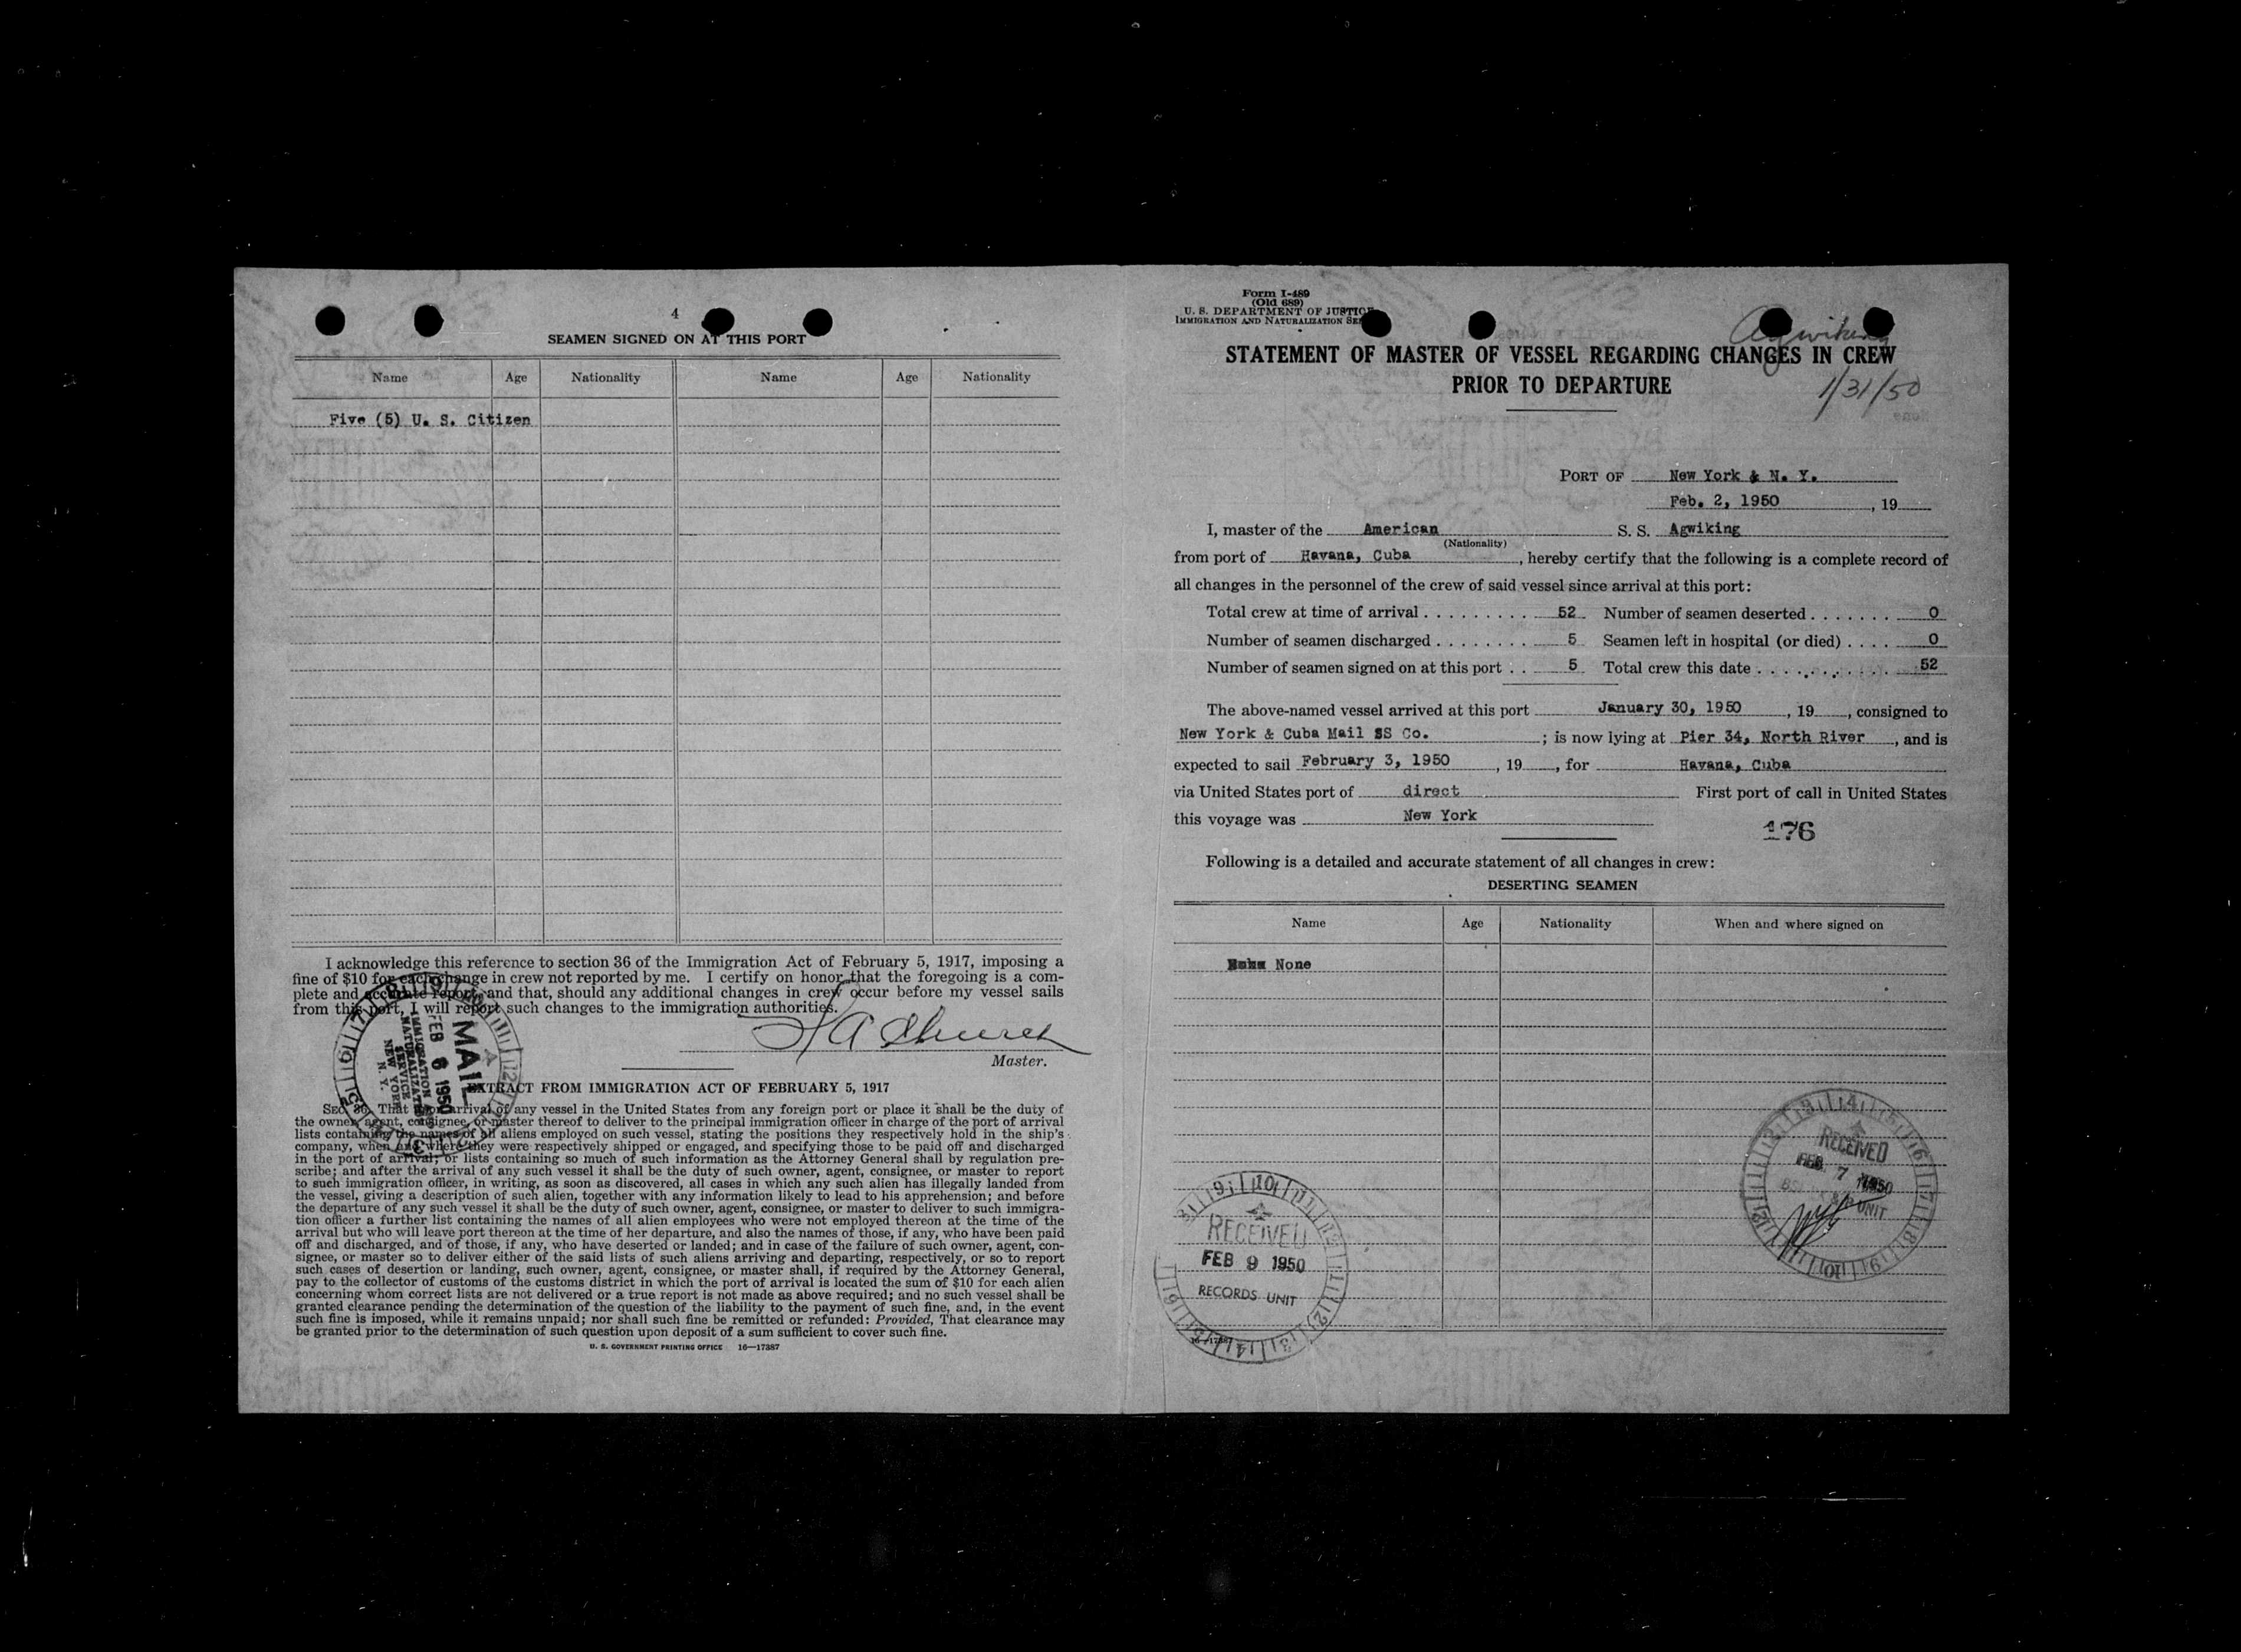 4
SEAMEN SIGNED ON AT THIS PORT
Name Age Nationality Name Age Nationality
Five (5) U. S. Citizen
I acknowledge this reference to section 36 of the Immigration Act of February 5, 1917, imposing a
fine of $10 for each change in crew not reported by me. I certify on honor that the foregoing is a com-
plete and accurate report, and that, should any additional changes in crew occur before my vessel sails
from this port, I will report such changes to the immigration authorities.
Master.
MAIL
FEB 6 1950
IMMIGRATION &
NATURALIZATION
SERVICE
NEW YORK
N. Y.
EXTRACT FROM IMMIGRATION ACT OF FEBRUARY 5, 1917
SEC. 36. That upon arrival of any vessel in the United States from any foreign port or place it shall be the duty of
the owner, agent, consignee, or master thereof to deliver to the principal immigration officer in charge of the port of arrival
lists containing the names of all aliens employed on such vessel, stating the positions they respectively hold in the ship's
company, when and where they were respectively shipped or engaged, and specifying those to be paid off and discharged
in the port of arrival; or lists containing so much of such information as the Attorney General shall by regulation pre-
scribe; and after the arrival of any such vessel it shall be the duty of such owner, agent, consignee, or master to report
to such immigration officer, in writing, as soon as discovered, all cases in which any such alien has illegally landed from
the vessel, giving a description of such alien, together with any information likely to lead to his apprehension; and before
the departure of any such vessel it shall be the duty of such owner, agent, consignee, or master to deliver to such immigra-
tion officer a further list containing the names of all alien employees who were not employed thereon at the time of the
arrival but who will leave port thereon at the time of her departure, and also the names of those, if any, who have been paid
off and discharged, and of those, if any, who have deserted or landed; and in case of the failure of such owner, agent, con-
signee, or master so to deliver either of the said lists of such aliens arriving and departing, respectively, or so to report
such cases of desertion or landing, such owner, agent, consignee, or master shall, if required by the Attorney General,
pay to the collector of customs of the customs district in which the port of arrival is located the sum of $10 for each alien
concerning whom correct lists are not delivered or a true report is not made as above required; and no such vessel shall be
granted clearance pending the determination of the question of the liability to the payment of such fine, and, in the event
such fine is imposed, while it remains unpaid; nor shall such fine be remitted or refunded: Provided, That clearance may
be granted prior to the determination of such question upon deposit of a sum sufficient to cover such fine.
U. S. GOVERNMENT PRINTING OFFICE 16—17387
Form I-489
(Old 689)
U. S. DEPARTMENT OF JUSTICE
IMMIGRATION AND NATURALIZATION SE
Agwiking
STATEMENT OF MASTER OF VESSEL REGARDING CHANGES IN CREW
PRIOR TO DEPARTURE
1/31/50
PORT OF New York & N. Y.
Feb. 2, 1950, 19
I, master of the American S. S. Agwiking
(Nationality)
from port of Havana, Cuba, hereby certify that the following is a complete record of
all changes in the personnel of the crew of said vessel since arrival at this port:
Total crew at time of arrival . . . . . . . . . 52 Number of seamen deserted . . . . . . . 0
Number of seamen discharged . . . . . . . . 5 Seamen left in hospital (or died) . . . . 0
Number of seamen signed on at this port . . 5 Total crew this date . . . . . . . . . . . 52
The above-named vessel arrived at this port January 30, 1950, 19, consigned to
New York & Cuba Mail SS Co.; is now lying at Pier 34, North River, and is
expected to sail February 3, 1950, 19, for Havana, Cuba
via United States port of direct First port of call in United States
this voyage was New York
176
Following is a detailed and accurate statement of all changes in crew:
DESERTING SEAMEN
Name Age Nationality When and where signed on
None
RECEIVED
FEB 7 1950
UNIT
RECEIVED
FEB 9 1950
RECORDS UNIT
16—17387